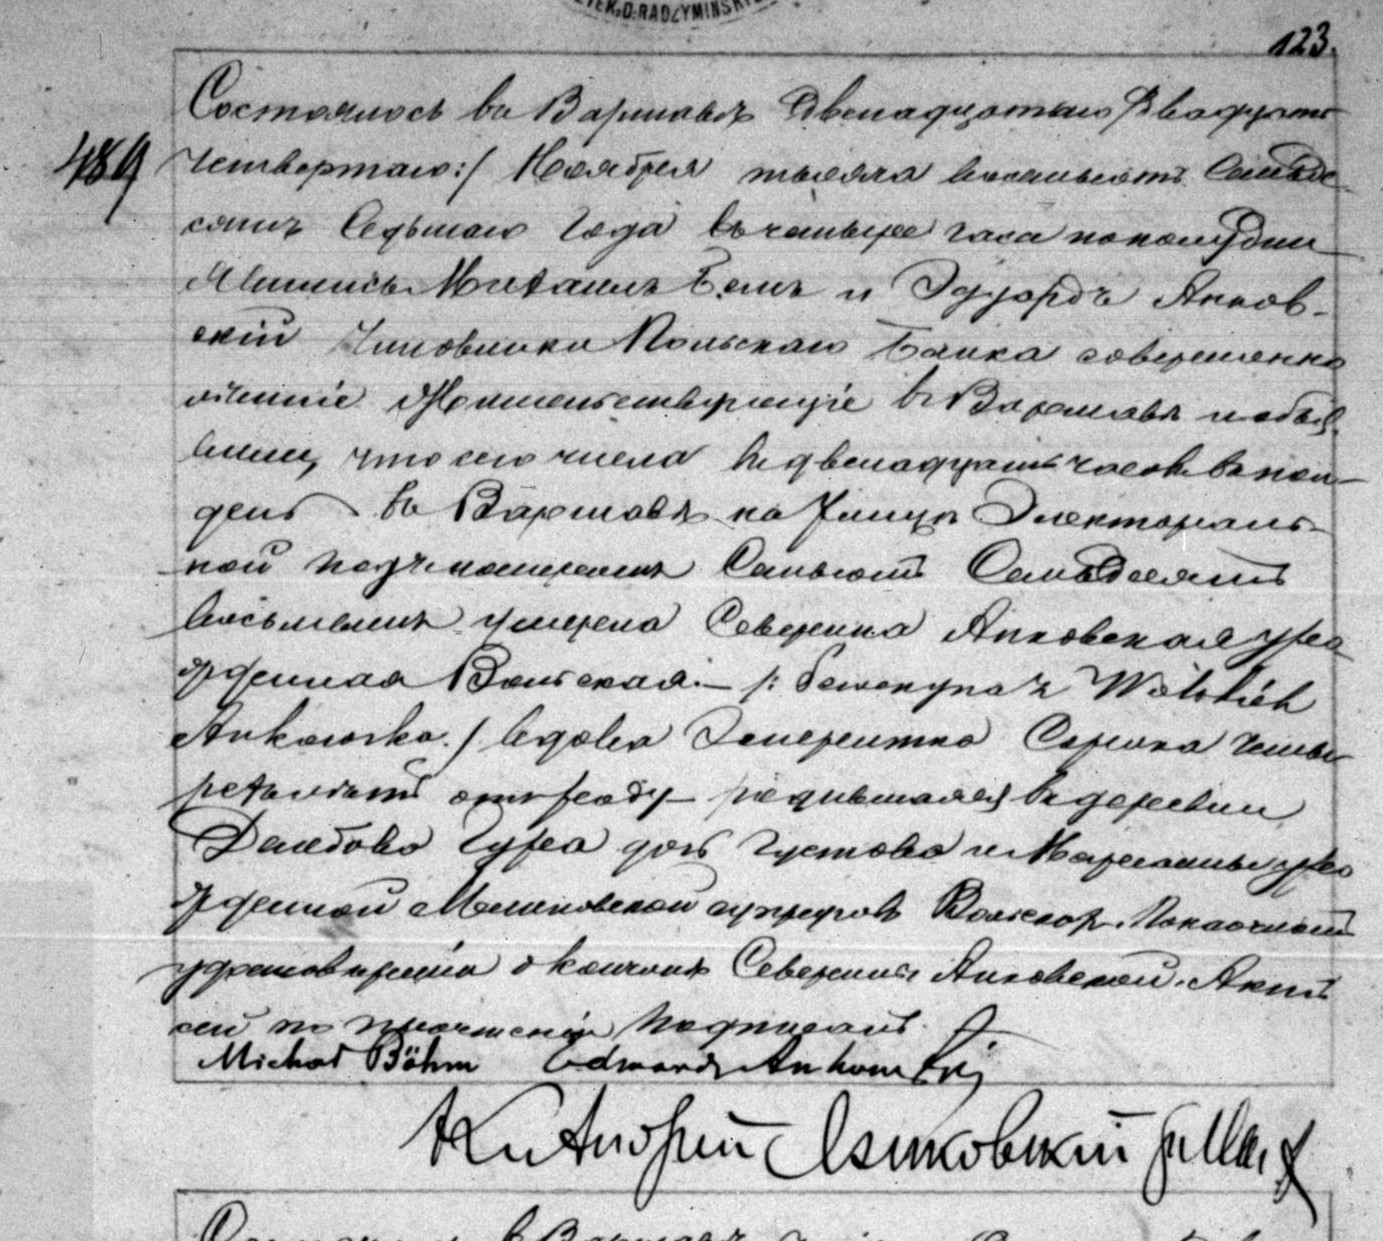 TEK. D. RADZYMIŃSKI
123.
Состоялось въ Варшавѣ Двенадцатаго /Двадцать
489
Четвертаго:/ Ноября тысяча восемьсотъ Семьде-
сятъ Седьмаго Года въ четыре часа пополудни
Явились Михаилъ Бемъ и Эдуардъ Анков-
скій Чиновники Польскаго Банка совершенно
лѣтніе Жительствующіе въ Варшавѣ и объя-
вили, что сего числа въ двенадцать часовъ въ пол-
день въ Варшавѣ на Улицѣ Электораль-
ной подъ номеромъ Семьсотъ Семьдесятъ
Восьмымъ умерла Северина Анковская уро
жденная Вольская.— /: безъ Wolskich
Ankowska./ вдова Эмеритка Сорока четы
рехъ лѣтъ отъ роду родившаяся въ деревни
Дембова Гура дочь Густава и Марianны уро
жденной супруговъ Вольскихъ. По настоятельномъ
удостовѣреніи о кончинѣ Северины Анковской. Актъ
сей по прочтеніи подписанъ.
Michał Böhm Edward Ankowski
Кс. Андрей
въ Варшавѣ